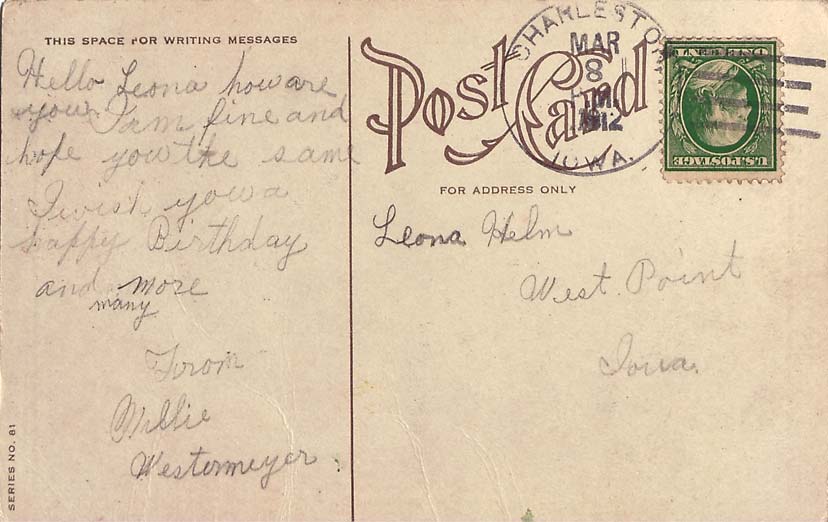 THIS SPACE FOR WRITING MESSAGES
Hello Leona how are
you I am fine and
hope you the same
I wish you a
happy Birthday
and more
many
From
Willie
Westermeyer
SERIES NO. 81
Post Card
FOR ADDRESS ONLY
CHARLESTON
MAR
8
1912
IOWA.
ONE CENT
U.S. POSTAGE
Leona Helm
West Point
Iowa.